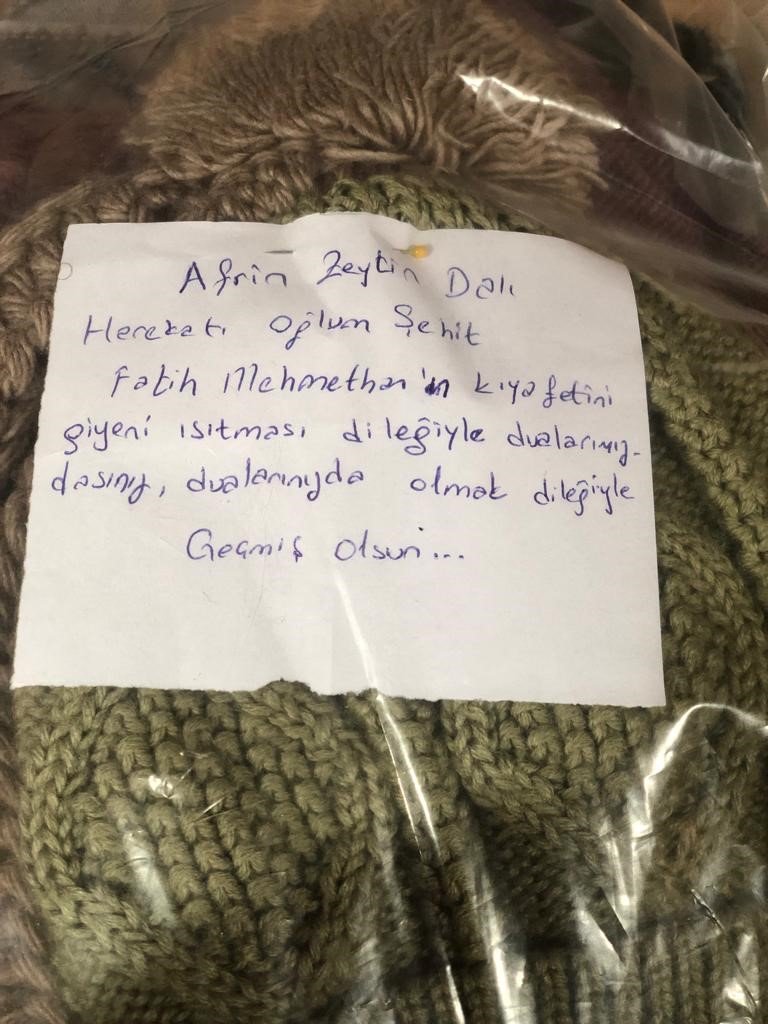 Afrin Zeytin Dalı
Herekatı Oğlum Şehit
Fatih Mehmethan'ın kıyafetini
giyeni ısıtması dileğiyle dualarımız-
dasınız, dualarınızda olmak dileğiyle
Geçmiş Olsun...